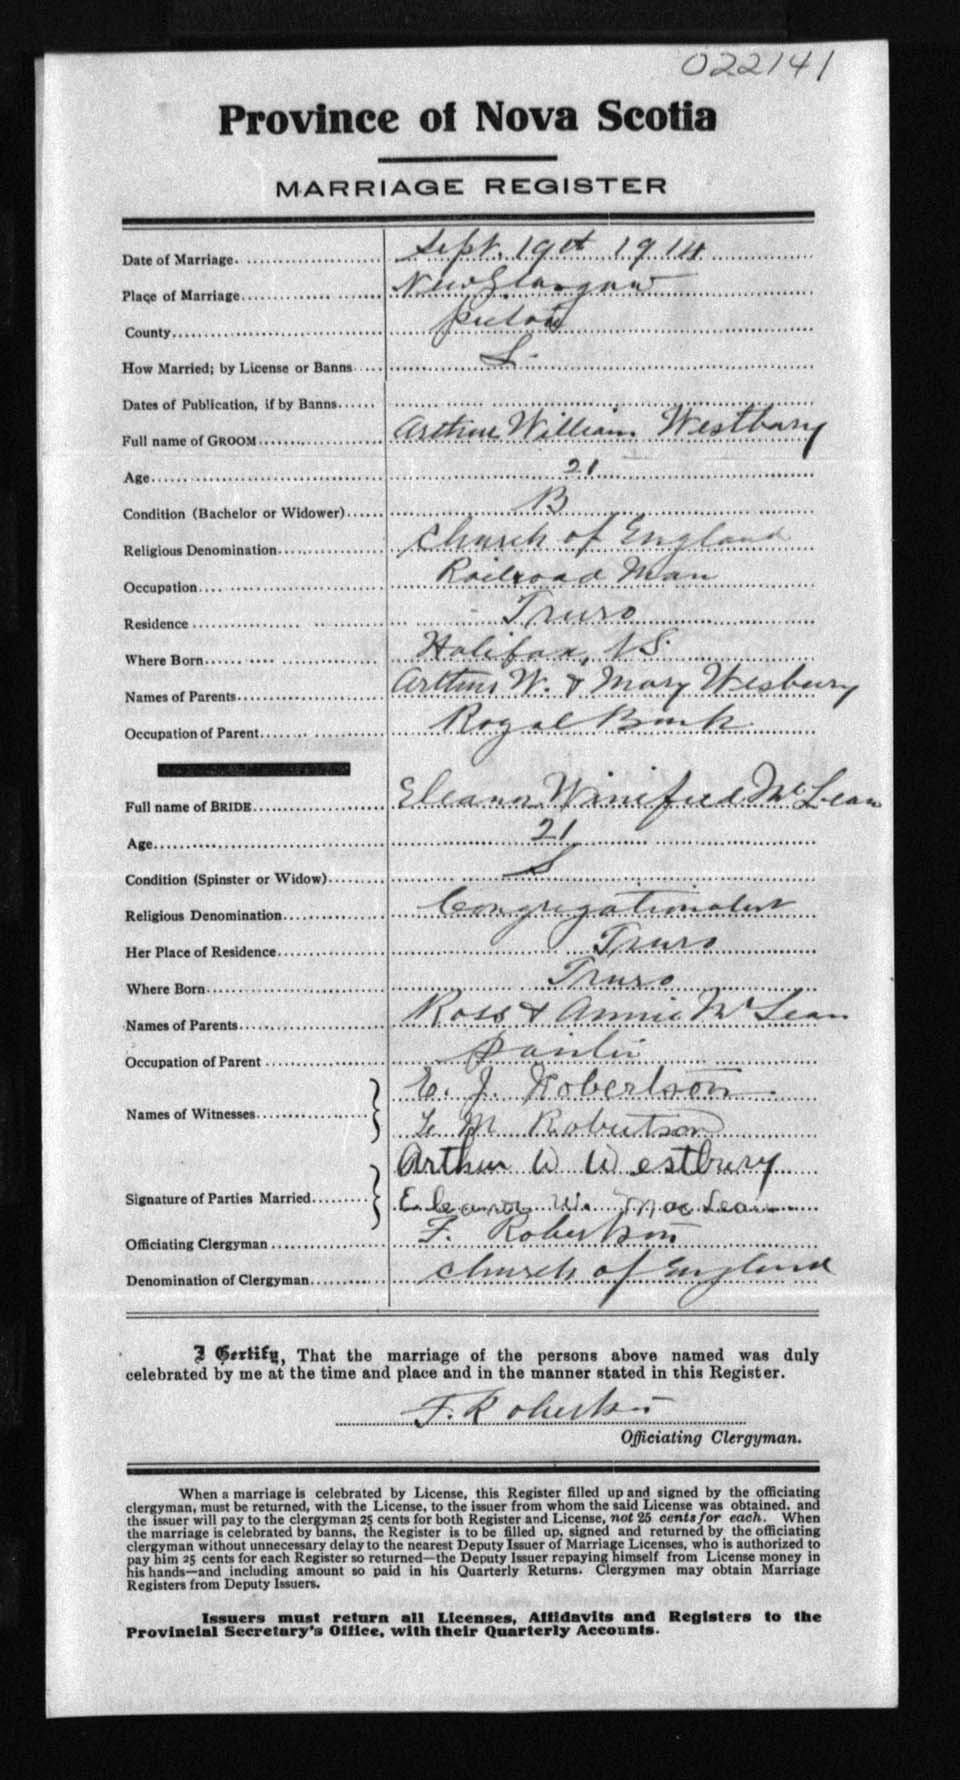 022141
Province of Nova Scotia
MARRIAGE REGISTER
Date of Marriage Sept. 19th 1914
Place of Marriage New Glasgow
County Pictou
How Married; by License or Banns L.
Dates of Publication, if by Banns
Full name of GROOM Arthur William Westbury
Age 21
Condition (Bachelor or Widower) B
Religious Denomination Church of England
Occupation Railroad Man
Residence Truro
Where Born Halifax, N.S.
Names of Parents Arthur W. & Mary Wesbury
Occupation of Parent Royal Bank
Full name of BRIDE Eleanor Winifred McLean
Age 21
Condition (Spinster or Widow) S
Religious Denomination Congregationalist
Her Place of Residence Truro
Where Born Truro
Names of Parents Ross & Annie McLean
Occupation of Parent Painter
Names of Witnesses E. J. Robertson
L M Robertson
Signature of Parties Married Arthur W Westbury
Eleanor W. MacLean
Officiating Clergyman F. Robertson
Denomination of Clergyman Church of England
I Certify, That the marriage of the persons above named was duly
celebrated by me at the time and place and in the manner stated in this Register.
F. Robertson
Officiating Clergyman.
When a marriage is celebrated by License, this Register filled up and signed by the officiating
clergyman, must be returned, with the License, to the issuer from whom the said License was obtained, and
the issuer will pay to the clergyman 25 cents for both Register and License, not 25 cents for each. When
the marriage is celebrated by banns, the Register is to be filled up, signed and returned by the officiating
clergyman without unnecessary delay to the nearest Deputy Issuer of Marriage Licenses, who is authorized to
pay him 25 cents for each Register so returned—the Deputy Issuer repaying himself from License money in
his hands—and including amount so paid in his Quarterly Returns. Clergymen may obtain Marriage
Registers from Deputy Issuers.
Issuers must return all Licenses, Affidavits and Registers to the
Provincial Secretary's Office, with their Quarterly Accounts.